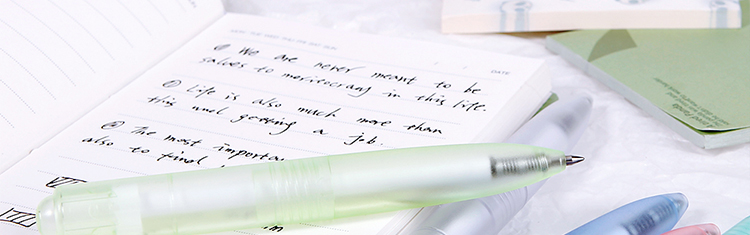 DATE
① We are never meant to be
salves to meritocracy in this life.
② Life is also much more than
this and getting a job.
③ The most importa
also to find